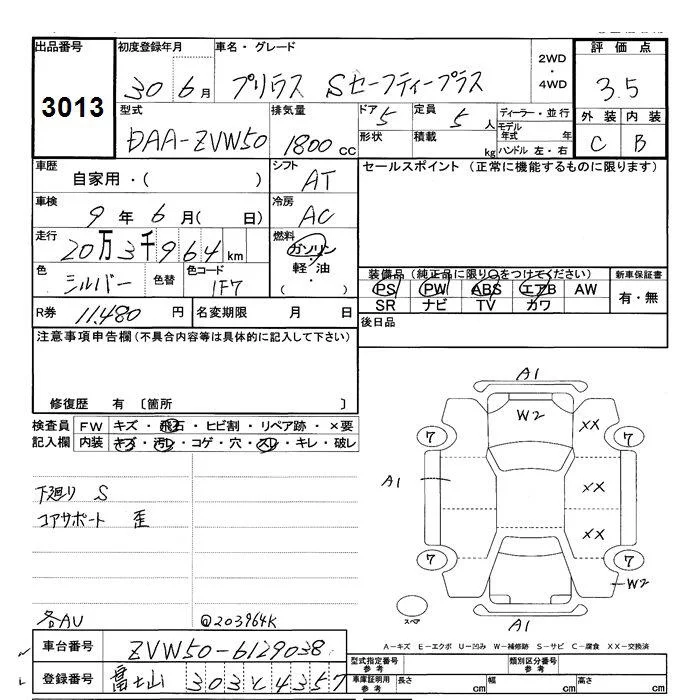 出品番号
3013
初度登録年月
30 6月
車名・グレード
プリウス Sセーフティープラス
2WD
・
4WD
評価点
3.5
型式
DAA-ZVW50
排気量
1800 cc
ドア
5
形状
定員
5人
積載
kg
ディーラー・並行
モデル
年式 年
ハンドル 左・右
外装 内装
C B
車歴
自家用・( )
シフト
AT
セールスポイント (正常に機能するものに限ります)
車検
9年6月( 日)
冷房
AC
走行
20万3千964km
燃料
ガソリン
・
軽油
・
( )
色
シルバー
色替
色コード
1F7
装備品(純正品に限り○をつけてください)
PS PW ABS エアB AW
SR ナビ TV カワ
新車保証書
有・無
R券 11,480円
名変期限 月 日
後日品
注意事項申告欄(不具合内容等は具体的に記入して下さい)
修復歴 有 〔箇所 〕
検査員
記入欄
FW キズ・飛石・ヒビ割・リペア跡・×要
内装 キズ・汚レ・コゲ・穴・スレ・キレ・破レ
下廻り S
コアサポート 歪
各AU
@203964K
A1
W2
XX
7
7
A1
XX
XX
7
7
W2
A1
スペア
A-キズ E-エクボ U-凹み W-補修跡 S-サビ C-腐食 XX-交換済
車台番号
ZVW50-6129038
登録番号
富士山 303 と 4357
型式指定番号
参考
類別区分番号
参考
車庫証明用
参考
長さ cm
幅 cm
高さ cm